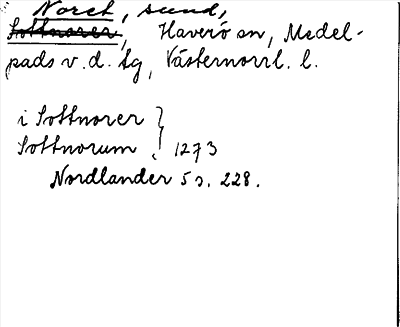 Noret, sund,
Sottnorer, Haverö sn, Medel-
pads v. d. tg, Västernorrl. l.
i Sottnorer
Sottnorum } 1273
Nordlander 5 s. 228.